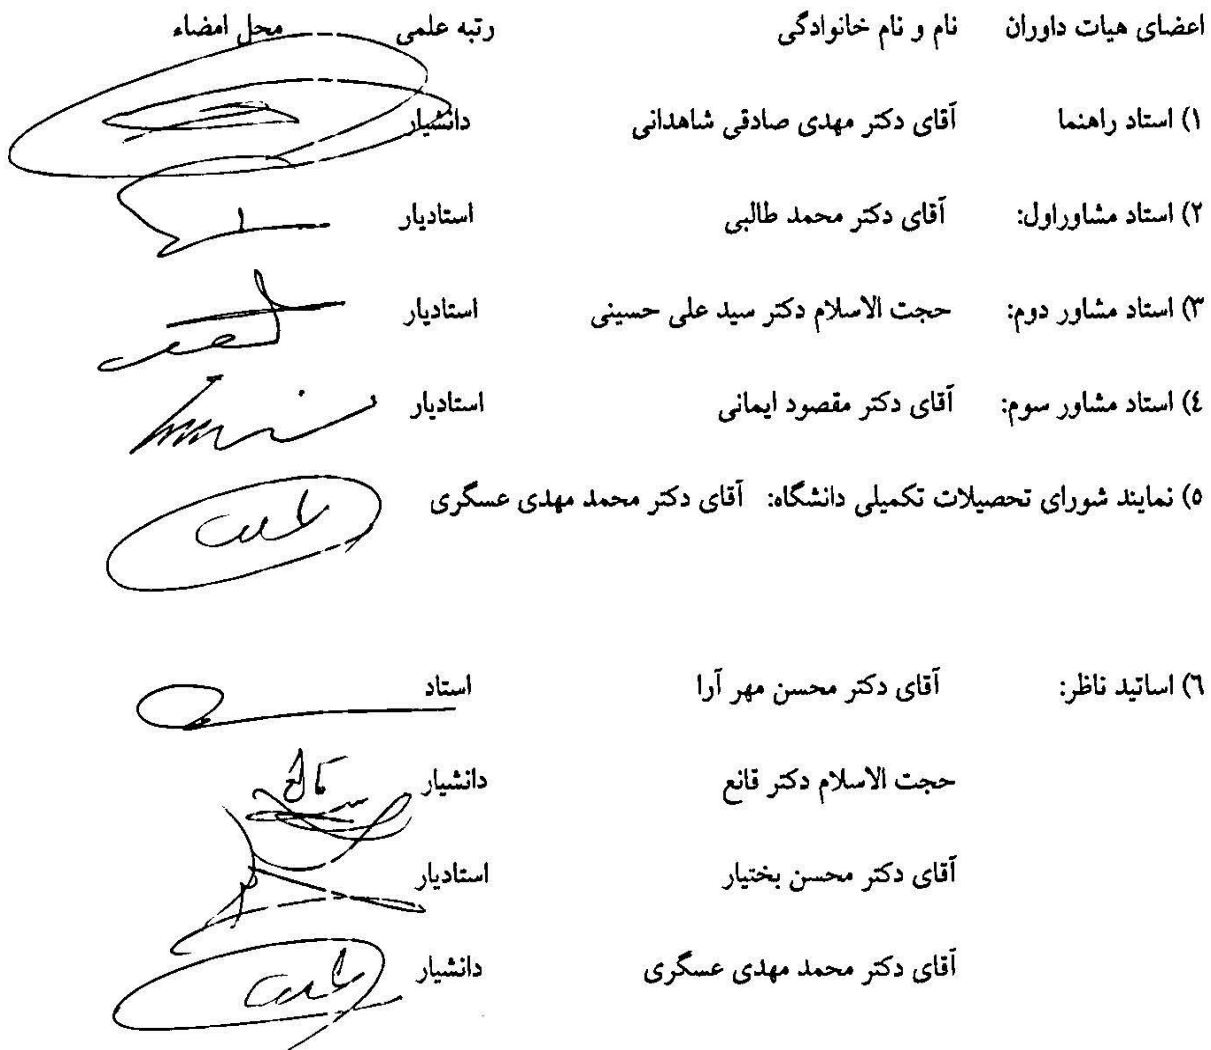 اعضای هیات داوران نام و نام خانوادگی رتبه علمی محل امضاء
۱) استاد راهنما آقای دکتر مهدی صادقی شاهدانی دانشیار
۲) استاد مشاوراول: آقای دکتر محمد طالبی استادیار
۳) استاد مشاور دوم: حجت الاسلام دکتر سید علی حسینی استادیار
٤) استاد مشاور سوم: آقای دکتر مقصود ایمانی استادیار
٥) نمایند شورای تحصیلات تکمیلی دانشگاه: آقای دکتر محمد مهدی عسگری
٦) اساتید ناظر: آقای دکتر محسن مهر آرا استاد
حجت الاسلام دکتر قانع دانشیار
آقای دکتر محسن بختیار استادیار
آقای دکتر محمد مهدی عسگری دانشیار